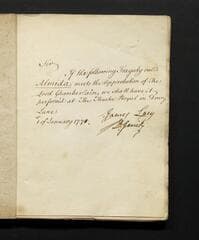 Sir
If the following Tragedy call'd
Almeda, meets the Approbation of the
Lord Chamberlain, we shall have it
perform'd at The Theatre Royal in Drury
Lane.
of January 1771.
James Lacy
D Garrick